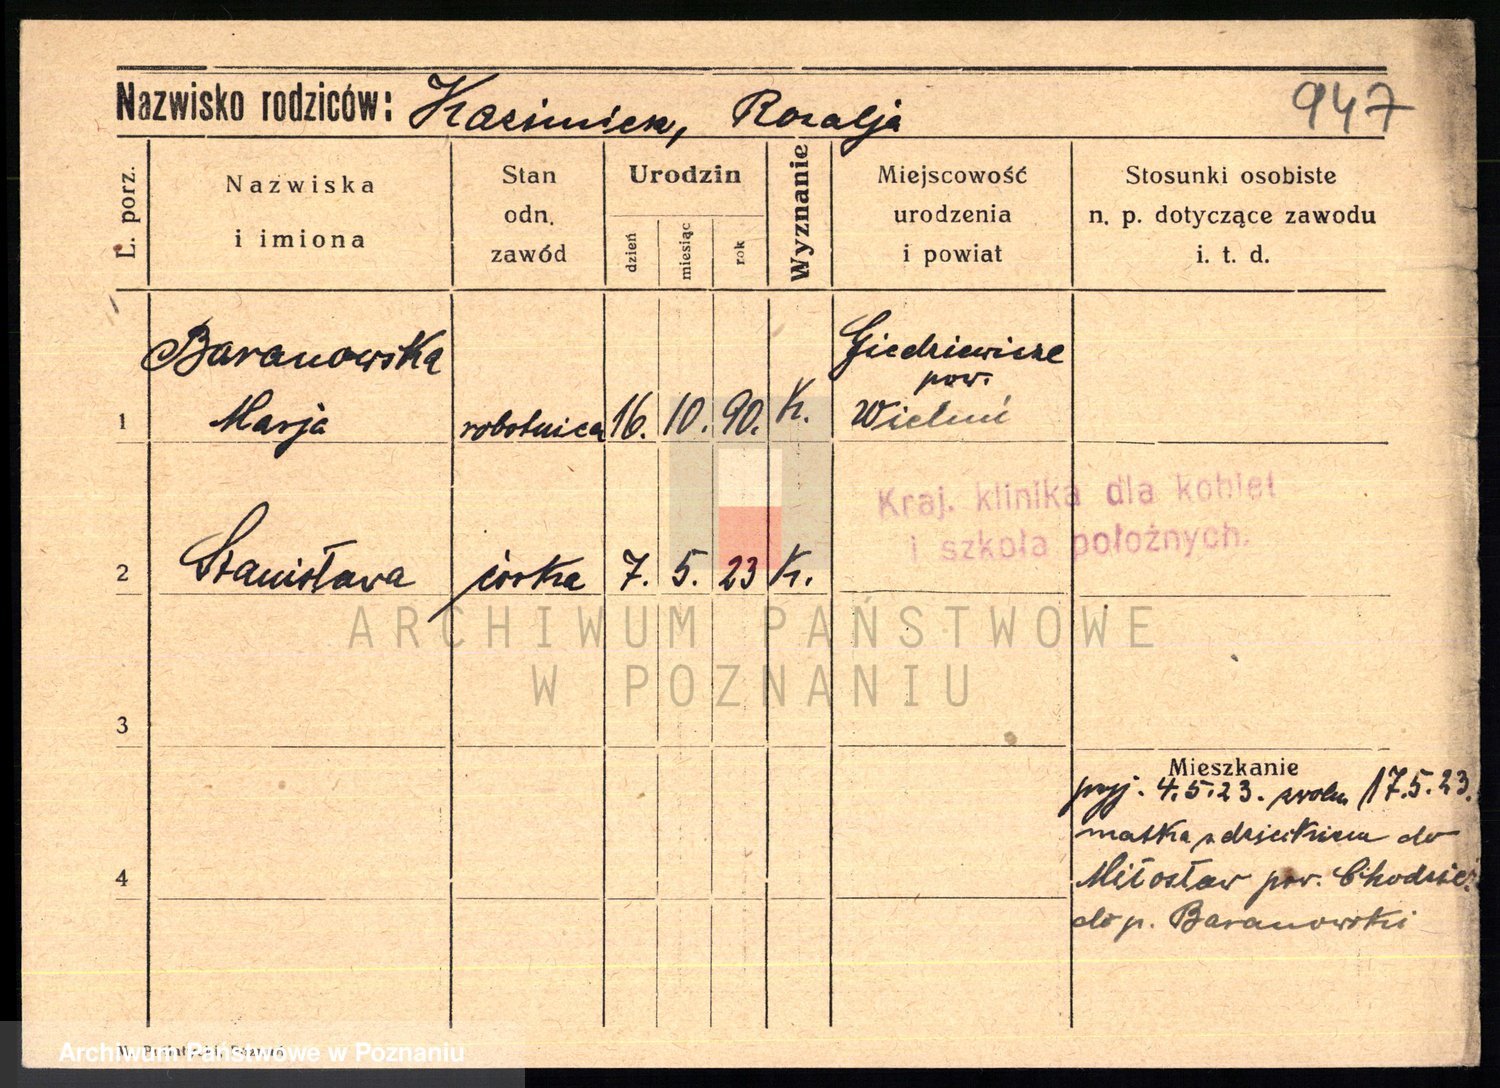 Nazwisko rodziców: Kazimierz, Rozalja
947
L. porz.
Nazwiska
i imiona
Stan
odn.
zawód
Urodzin
dzień
miesiąc
rok
Wyznanie
Miejscowość
urodzenia
i powiat
Stosunki osobiste
n. p. dotyczące zawodu
i. t. d.
Baranowska
Giedziewicze
pow.
1 Marja robotnica 16. 10. 90. K. Wieluń
Kraj. klinika dla kobiet
i szkoła położnych.
2 Stanisława córka 7. 5. 23 K.
ARCHIWUM PAŃSTWOWE
W POZNANIU
3
Mieszkanie
przyj. 4.5.23. zwoln 17.5.23.
matka z dzieckiem do
4 Miłosław pow. Chodzież
do p. Baranowski
Archiwum Państwowe w Poznaniu